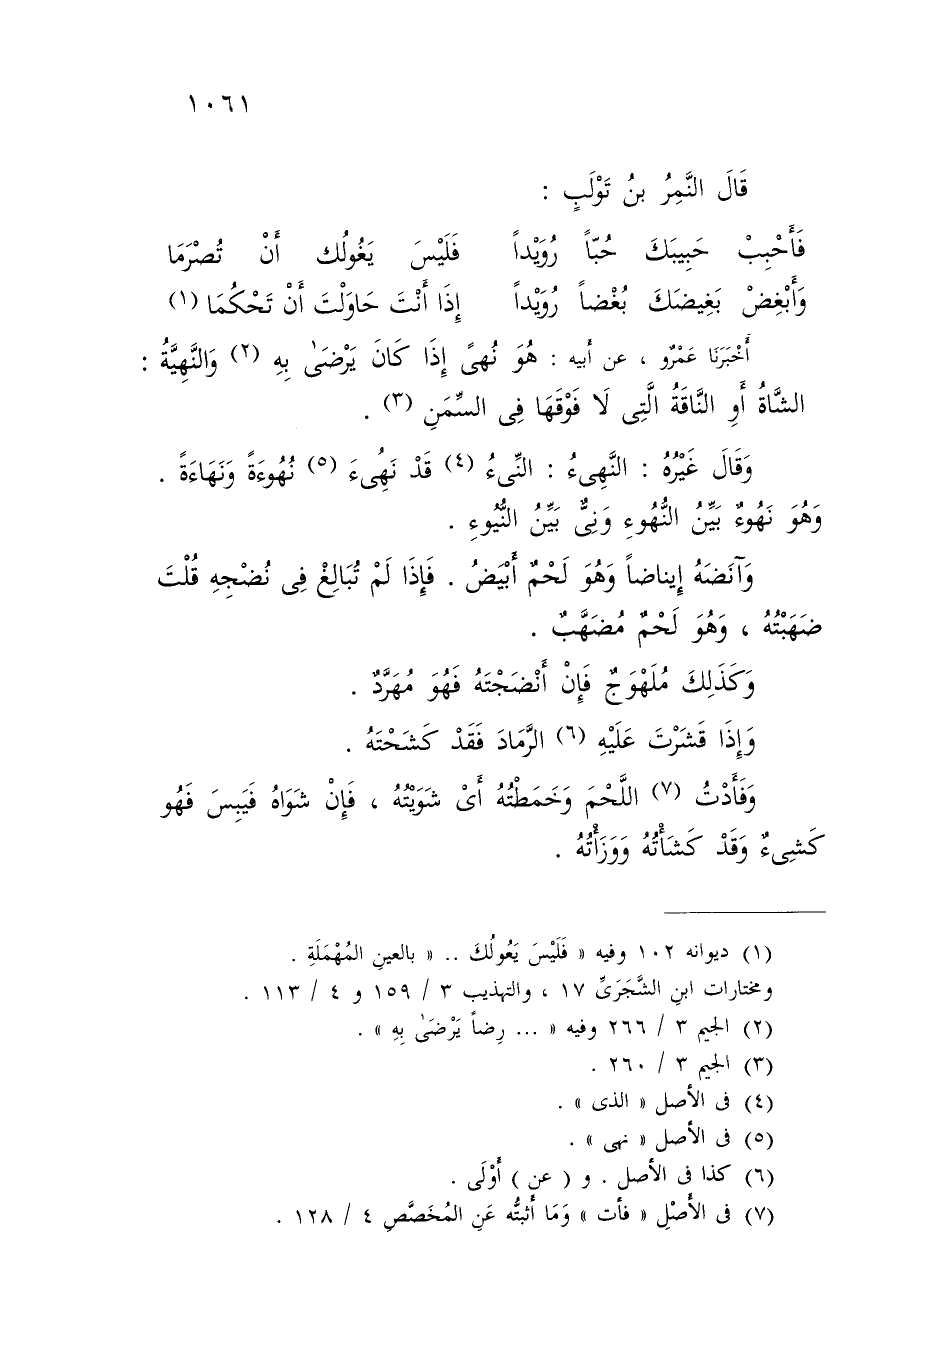 ١٠٦١
قَالَ النَّمِرُ بنُ تَوْلَبٍ :
فَأَحْبِبْ حَبِيبَكَ حُبّاً رُوَيْداً فَلَيْسَ يَغُولُك أَنْ تُصْرَمَا
وَأَبْغِضْ بَغِيضَكَ بُغْضاً رُوَيْداً إِذَا أَنْتَ حَاوَلْتَ أَنْ تَحْكُمَا (١)
أَخْبَرَنَا عَمْرٌو ، عن أبيه : هُوَ نُهىً إِذَا كَانَ يَرْضَىٰ بِهِ (٢) وَالنَّهِيَّةُ :
الشَّاةُ أَوِ النَّاقَةُ الَّتِى لَا فَوْقَهَا فِى السِّمَنِ (٣) .
وَقَالَ غَيْرُهُ : النَّهِىءُ : النِّىءُ (٤) قَدْ نَهُىءَ (٥) نُهُوءَةً وَنَهَاءَةً .
وَهُوَ نَهُوءٌ بَيِّنُ النُّهُوءِ وَنِىٌّ بَيِّنُ النُّيُوءِ .
وَآنَضَهُ إِيناضاً وَهُوَ لَحْمٌ أَبْيَضُ . فَإِذَا لَمْ تُبَالِغْ فِى نُضْجِهِ قُلْتَ
ضَهَبْتُهُ ، وَهُوَ لَحْمٌ مُضَهَّبٌ .
وَكَذَلِكَ مُلَهْوَجٌ فَإِنْ أَنْضَجْتَهُ فَهُوَ مُهَرَّدٌ .
وَإِذَا قَشَرْتَ عَلَيْهِ (٦) الرَّمَادَ فَقَدْ كَشَحْتَهُ .
وَفَأَدْتُ (٧) اللَّحْمَ وَخَمَطْتُهُ أَىْ شَوَيْتُهُ ، فَإِنْ شَوَاهُ فَيَبِسَ فَهُو
كَشِىءٌ وَقَدْ كَشَأْتُهُ وَوَزَأْتُهُ .
(١) ديوانه ١٠٢ وفيه « فَلَيْسَ يَعُولُكَ .. » بالعينِ المُهْمَلَةِ .
ومختارات ابنِ الشَّجَرَىِّ ١٧ ، والتهذيب ٣ / ١٥٩ و ٤ / ١١٣ .
(٢) الجيم ٣ / ٢٦٦ وفيه « ... رِضاً يَرْضَىٰ بِهِ » .
(٣) الجيم ٣ / ٢٦٠ .
(٤) فى الأصل « الذى » .
(٥) فى الأصل « نهى » .
(٦) كذا فى الأصل . و ( عن ) أَوْلَى .
(٧) فى الأَصْلِ « فأت » وَمَا أَثبتُّه عَنِ المُخَصَّصِ ٤ / ١٢٨ .